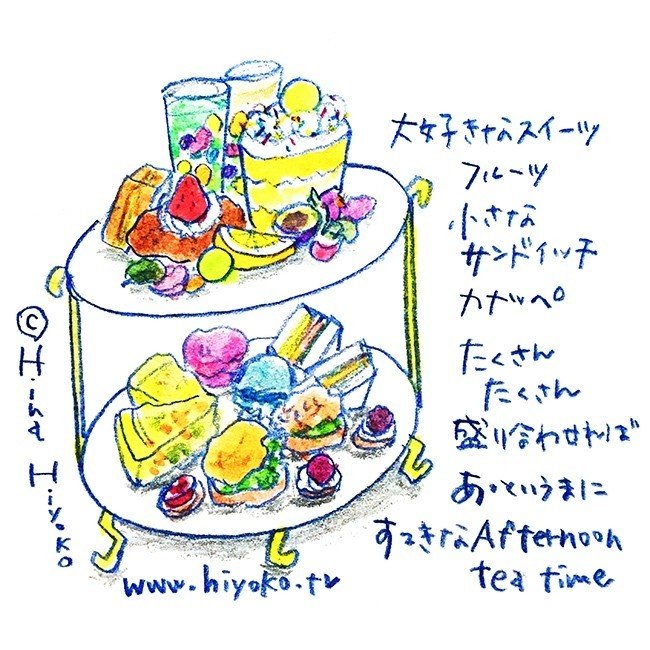 大好きなスイーツ
フルーツ
小さな
サンドイッチ
カナッペ
たくさん
たくさん
盛り合わせれば
あっというまに
すてきなAfternoon
tea time
© Hina Hiyoko
www.hiyoko.tv